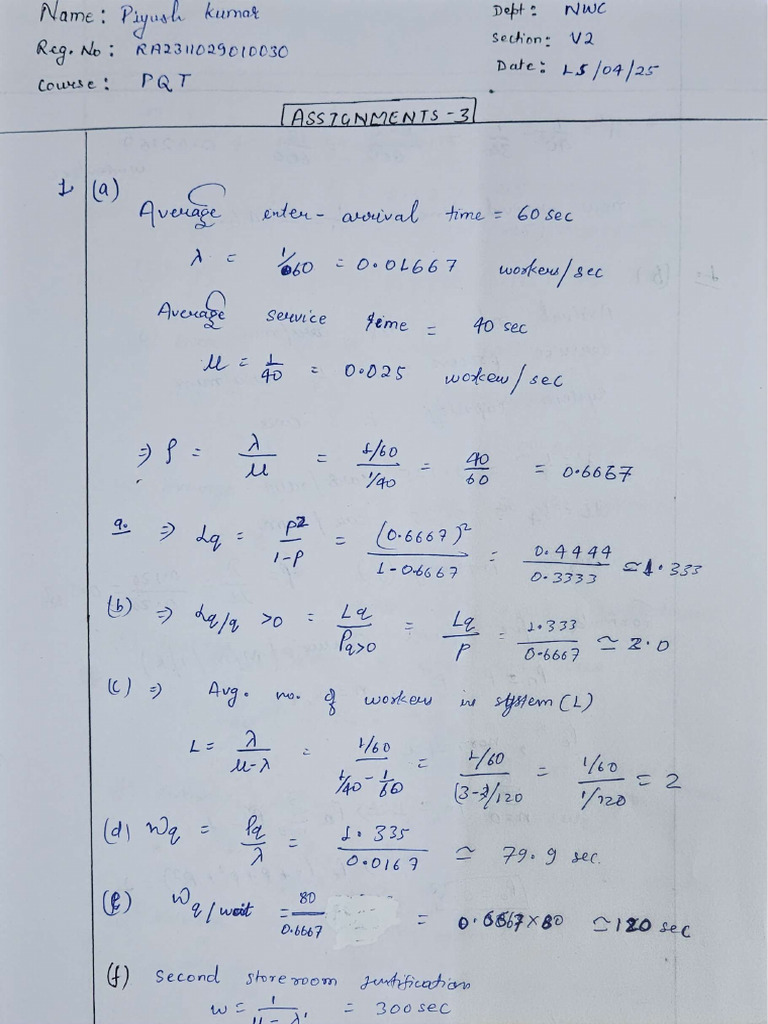 Name: Piyush Kumar
Dept: NWC
Reg. No: RA2311029010030
Section: V2
Course: PQT
Date: 15/04/25
ASSIGNMENTS-3
1 (a)
Average enter-arrival time = 60 sec
λ = 1/60 = 0.01667 workers/sec
Average service time = 40 sec
μ = 1/40 = 0.025 workers/sec
⇒ ρ = λ/μ = (1/60)/(1/40) = 40/60 = 0.6667
a. ⇒ Lq = ρ²/(1-ρ) = (0.6667)²/(1-0.6667) = 0.4444/0.3333 ≃ 1.333
(b) ⇒ Lq/q >0 = Lq/Pq>0 = Lq/ρ = 1.333/0.6667 ≃ 2.0
(c) ⇒ Avg. no. of workers in system (L)
L = λ/(μ-λ) = (1/60)/(1/40 - 1/60) = (1/60)/((3-2)/120) = (1/60)/(1/120) = 2
(d) Wq = Lq/λ = 1.335/0.0167 ≃ 79.9 sec.
(e) Wq/wait = 80/0.6667 = 0.6667×80 ≃ 120 sec
(f) Second storeroom justification
w = 1/(μ - λ' = 300 sec